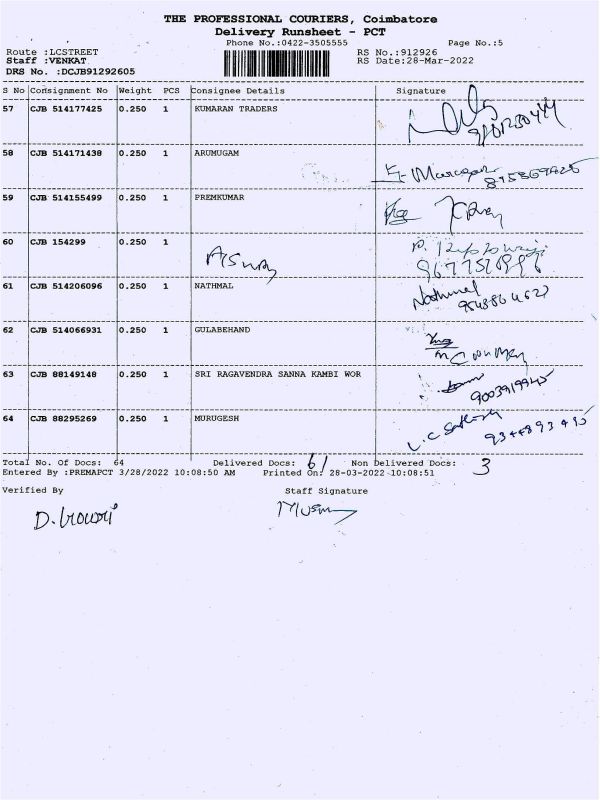 THE PROFESSIONAL COURIERS, Coimbatore
Delivery Runsheet - PCT
Phone No.:0422-3505555 Page No.:5
Route :LCSTREET RS No.:912926
Staff :VENKAT RS Date:28-Mar-2022
DRS No. :DCJB91292605
S No Consignment No Weight PCS Consignee Details Signature
57 CJB 514177425 0.250 1 KUMARAN TRADERS
58 CJB 514171438 0.250 1 ARUMUGAM
59 CJB 514155499 0.250 1 PREMKUMAR
60 CJB 154299 0.250 1
61 CJB 514206096 0.250 1 NATHMAL Nathmal
62 CJB 514066931 0.250 1 GULABEHAND
63 CJB 88149148 0.250 1 SRI RAGAVENDRA SANNA KAMBI WOR 9003919945
64 CJB 88295269 0.250 1 MURUGESH
Total No. Of Docs: 64 Delivered Docs: 61 Non Delivered Docs: 3
Entered By :PREMAPCT 3/28/2022 10:08:50 AM Printed On: 28-03-2022 10:08:51
Verified By Staff Signature